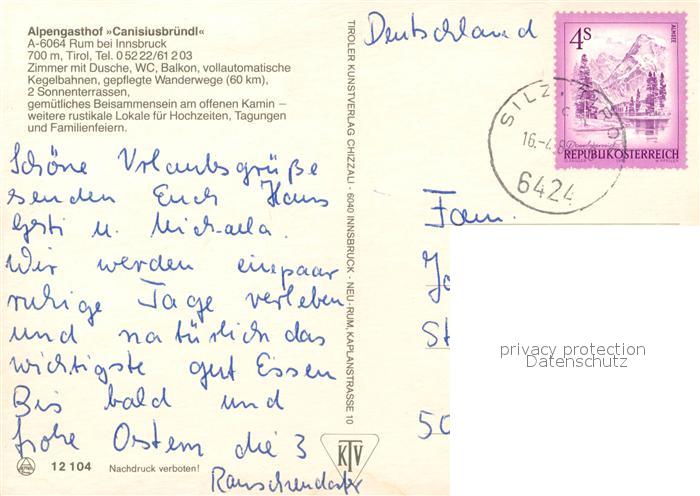 Alpengasthof »Canisiusbründl«
A-6064 Rum bei Innsbruck
700 m, Tirol, Tel. 0 52 22/61 2 03
Zimmer mit Dusche, WC, Balkon, vollautomatische
Kegelbahnen, gepflegte Wanderwege (60 km),
2 Sonnenterrassen,
gemütliches Beisammensein am offenen Kamin –
weitere rustikale Lokale für Hochzeiten, Tagungen
und Familienfeiern.
Schöne Urlaubsgrüße
senden Euch Hans
Gesti u. Michaela.
Wir werden einpaar
ruhige Tage verleben
und natürlich das
wichtigste gut Essen
Bis bald und
frohe Ostern die 3
Rauschendorfer
12 104 Nachdruck verboten!
TIROLER KUNSTVERLAG CHIZZALI · 6040 INNSBRUCK - NEU-RUM, KAPLANSTRASSE 10
KTV
Deutschland
4S
ALMSEE
REPUBLIK ÖSTERREICH
SILZ
16.-4.8
6424
Fam.
Jo
St
50
privacy protection
Datenschutz